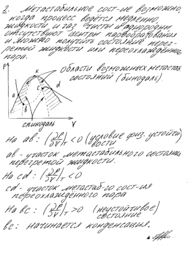 2. Метастабильное сост-ие возможно,
когда процесс ведётся медленно,
жидкость и газ чисты и однородны
отсутствуют центры парообразования
и можно получить состояния перег-
ретой жидкости или переохлаждённого
пара.
P
области возможных метастаб.
состояний (бинодаль)
a
b
c
d
V
спинодаль
На ab: (∂P/∂V)T < 0 (условие физ. устойчи
вости
ab - участок метастабильного состояния
перегретой жидкости.
На cd: (∂P/∂V)T < 0
cd - участок метастаб-го сост-ия
переохлаждённого пара
На bc: (∂P/∂V)T > 0 (неустойчивое)
состояние
bc: начинается конденсация.